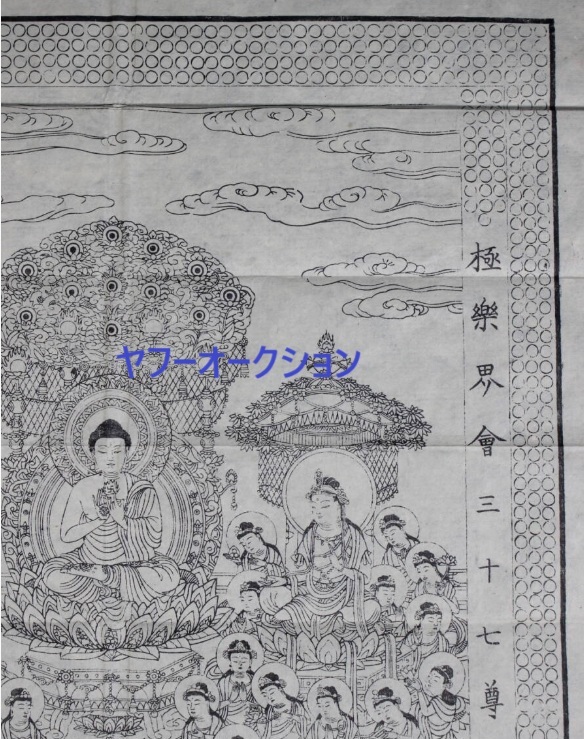 極樂界會三十七尊
ヤフーオークション